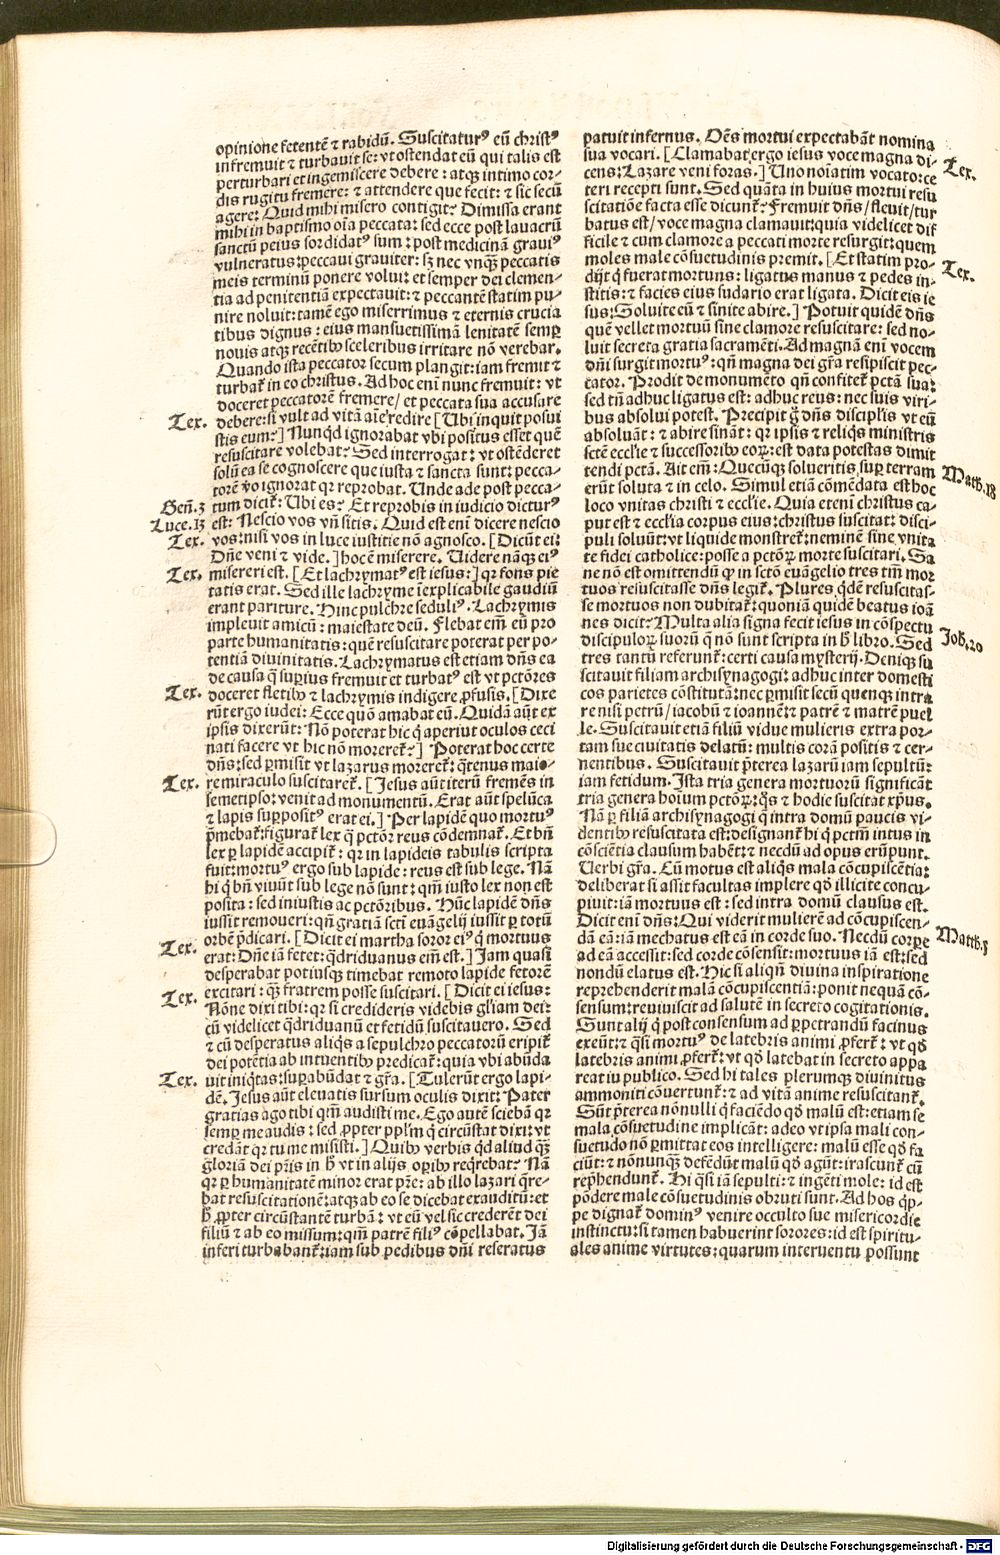 opinione fetentē ⁊ rabidū. Suscitaturꝰ eū christꝰ
infremuit ⁊ turbauit se: vt ostendat eū qui talis est
perturbari et ingemiscere debere: atqꝫ intimo cor-
dis rugitu fremere: ⁊ attendere que fecit: ⁊ sic secū
agere: Quid mihi misero contigit? Dimissa erant
mihi in baptismo oīa peccata: sed ecce post lauacrū
sanctū peius sordidatꝰ sum: post medicinā grauiꝰ
vulneratus: peccaui grauiter: sꝫ nec vnqꝫ peccatis
meis terminū ponere volui: et semper dei clemen-
tia ad penitentiā expectauit: ⁊ peccantē statim pu-
nire noluit: tamē ego miserrimus ⁊ eternis crucia
tibus dignus: eius mansuetissimā lenitatē semꝑ
nouis atqꝫ recētibꝰ sceleribus irritare nō verebar.
Quando ista peccator secum plangit: iam fremit ⁊
turbat̉ in eo christus. Ad hoc enī nunc fremuit: vt
doceret peccatorē fremere/ et peccata sua accusare
Tex. debere: si vult ad vitā aīe redire [Ubi inquit posui
stis eum?] Nunqd ignorabat vbi positus esset quē
resuscitare volebat? Sed interrogat: vt ostēderet
solū ea se cognoscere que iusta ⁊ sancta sunt: pecca-
torē vo ignorat qr reprobat. Unde ade post pecca-
Geñ. 3 tum dicit̉: Ubi es? Et reprobis in iudicio dicturꝰ
Luce. 13 est: Nescio vos vñ sitis. Quid est enī dicere nescio
Tex. vos: nisi vos in luce iustitie nō agnosco. [Dicūt ei:
Dñe veni ⁊ vide.] hoc ē miserere. Uidere nāqꝫ eiꝰ
Tex. misereri est. [Et lachrymatꝰ est iesus:] qr fons pie
tatis erat. Sed ille lachryme īexplicabile gaudiū
erant pariture. Hinc pulchre seduliꝰ. Lachrymis
impleuit amicū: maiestate deū. Flebat em̄ eū pro
parte humanitatis: quē resuscitare poterat per po-
tentiā diuinitatis. Lachrymatus est etiam dñs ea
de causa q̄ suꝑius fremuit et turbatꝰ est vt pctōres
Tex. doceret fletibꝰ ⁊ lachrymis indigere ꝓfusis. [Dixe
rūt ergo iudei: Ecce quō amabat eū. Quidā aūt ex
ipsis dixerūt: Nō poterat hic q̇ aperiut oculos ceci
nati facere vt hic nō moreret̉?] Poterat hoc certe
dñs: sed ꝑmisit vt lazarus moreret̉: qtenus maio-
Tex. re miraculo suscitaret̉. [Jesus aūt iterū fremēs in
semetipso: venit ad monumentū. Erat aūt spelūca
⁊ lapis suꝑpositꝰ erat ei.] Per lapidē quo mortuꝰ
p̄mebat̉: figurat̉ lex q̄ pctōr reus cōdemnat̉. Et bñ
lex ꝑ lapidē accipit̉: qr in lapideis tabulis scripta
fuit: mortuꝰ ergo sub lapide: reus est sub lege. Nā
hi q̇ bñ viuūt sub lege nō sunt: qm̄ iusto lex non est
posita: sed iniustis ac pctōribus. Hūc lapidē dñs
iussit remoueri: qñ gratiā scti euāgelij iussit ꝑ totū
orbē p̄dicari. [Dicit ei martha soror eiꝰ q̇ mortuus
Tex. erat: Dñe iā fetet: qdriduanus em̄ est.] Jam quasi
desperabat potiusqꝫ timebat remoto lapide fetorē
Tex. excitari: qꝫ fratrem posse suscitari. [Dicit ei iesus:
Nōne dixi tibi: qr si credideris videbis gl'iam dei:
cū videlicet qdriduanū et fetidū suscitauero. Sed
⁊ cū desperatus aliqs a sepulchro peccatorū eripit̉
dei potētia ab intuentibꝰ predicat̉: quia vbi abūda
Tex. uit iniqtas: suꝑabūdat ⁊ gr̄a. [Tulerūt ergo lapi-
dē. Jesus aūt eleuatis sursum oculis dixit: Pater
gratias ago tibi qm̄ audisti me. Ego autē sciebā qr
semꝑ me audis: sed ꝓpter ppl'm q̇ circūstat dixi: vt
credāt qr tu me misisti.] Quibꝰ verbis qd aliud qꝫ
gloriā dei p̄ris in h̄ vt in alijs oꝑibꝰ reqrebat? Nā
qr ꝑ humanitatē minor erat pr̄e: ab illo lazari qre-
bat resuscitationē: atqꝫ ab eo se dicebat exauditū: et
h̄ ꝓpter circūstantē turbā: vt eū vel sic crederēt dei
filiū ⁊ ab eo missum: qm̄ patrē filiꝰ cōpellabat. Jā
inferi turbabant̉: iam sub pedibus dñi reseratus
patuit infernus. Oēs mortui expectabāt nomina
sua vocari. [Clamabat ergo iesus voce magna di-
Tex.
cens: Lazare veni foras.] Uno noīatim vocato: ce
teri recepti sunt. Sed quāta in huius mortui resu
scitatiōe facta esse dicunt̉? Fremuit dñs/ fleuit/ tur
batus est/ voce magna clamauit: quia videlicet dif
ficile ⁊ cum clamore a peccati morte resurgit: quem
moles male cōsuetudinis premit. [Et statim pro-
Tex.
dijt q̇ fuerat mortuus: ligatus manus ⁊ pedes in-
stitis: ⁊ facies eius sudario erat ligata. Dicit eis ie
sus: Soluite eū ⁊ sinite abire.] Potuit quidē dñs
quē vellet mortuū sine clamore resuscitare: sed no-
luit secreta gratia sacramēti. Ad magnā enī vocem
dñi surgit mortuꝰ: qñ magna dei gr̄a resipiscit pec-
cator. Prodit de monumēto qñ confitet̉ pctā sua:
sed tñ adhuc ligatus est: adhuc reus: nec suis viri-
bus absolui potest. Precipit g̊ dñs discipl'is vt eū
absoluāt: ⁊ abire sināt: qr ipsis ⁊ reliqs ministris
sctē eccl'ie ⁊ successoribꝰ eoꝝ: est data potestas dimit
tendi pctā. Ait em̄: Quecūqꝫ solueritis suꝑ terram
Matth. 18
erūt soluta ⁊ in celo. Simul etiā cōmēdata est hoc
loco vnitas christi ⁊ eccl'ie. Quia etenī christus ca-
put est ⁊ eccl'ia corpus eius: christus suscitat: disci-
puli soluūt: vt liquide monstret̉: neminē sine vnita
te fidei catholice: posse a pctōꝝ morte suscitari. Sa
ne nō est omittendū ꝙ in sctō euāgelio tres tm̄ mor
tuos resuscitasse dñs legit̉. Plures qdē resuscitas-
se mortuos non dubitat̉: quoniā quidē beatus ioā
nes dicit: Multa alia signa fecit iesus in cōspectu
Joh. 20
discipuloꝝ suorū q̄ nō sunt scripta in h̄ libro. Sed
tres tantū referunt̉: certi causa mysterij. Deniqꝫ su
scitauit filiam archisynagogi: adhuc inter domesti
cos parietes cōstitutā: nec ꝑmisit secū quenqꝫ intra
re nisi petrū/ iacobū ⁊ ioannē: ⁊ patrē ⁊ matrē puel
le. Suscitauit etiā filiū vidue mulieris extra por-
tam sue ciuitatis delatū: multis corā positis ⁊ cer-
nentibus. Suscitauit p̄terea lazarū iam sepultū:
iam fetidum. Ista tria genera mortuorū significāt
tria genera hoīum pctōꝝ: qs ⁊ hodie suscitat xp̄us.
Nā ꝑ filiā archisynagogi q̄ intra domū paucis vi-
dentibꝰ resuscitata est: designant̉ hi q̇ pctm̄ intus in
cōsciētia clausum habēt: ⁊ necdū ad opus erūpunt.
Uerbi gr̄a. Cū motus est aliqs mala cōcupiscētia:
deliberat si assit facultas implere qd̄ illicite concu-
piuit: iā mortuus est: sed intra domū clausus est.
Dicit enī dñs: Qui viderit mulierē ad cōcupiscen-
Matth. 5
dā eā: iā mechatus est eā in corde suo. Necdū corꝑe
ad eā accessit: sed corde cōsensit: mortuus iā est: sed
nondū elatus est. Hic si aliqñ diuina inspiratione
reprehenderit malā cōcupiscentiā: ponit nequā cō-
sensum: reuiuiscit ad salutē in secreto cogitationis.
Sunt alij q̇ post consensum ad ꝑpetrandū facinus
exeūt: ⁊ qsi mortuꝰ de latebris animi ꝓfert̉: vt qd̄
latebris animi ꝓfert̉: vt qd̄ latebat in secreto appa
reat in publico. Sed hi tales plerumqꝫ diuinitus
ammoniti cōuertunt̉: ⁊ ad vitā anime resuscitant̉.
Sūt p̄terea nōnulli q̇ faciēdo qd̄ malū est: etiam se
mala cōsuetudine implicāt: adeo vt ipsa mali con-
suetudo nō ꝑmittat eos intelligere: malū esse qd̄ fa
ciūt: ⁊ nōnunqꝫ defēdūt malū qd̄ agūt: irascunt̉ cū
rep̄hendunt̉. Hi qsi iā sepulti: ⁊ ingēti mole: id est
pōdere male cōsuetudinis obruti sunt. Ad hos qp-
pe dignat̉ dominꝰ venire occulto sue misericordie
instinctu: si tamen habuerint sorores: id est spiritu-
ales anime virtutes: quarum interuentu possunt
Digitalisierung gefördert durch die Deutsche Forschungsgemeinschaft - DFG